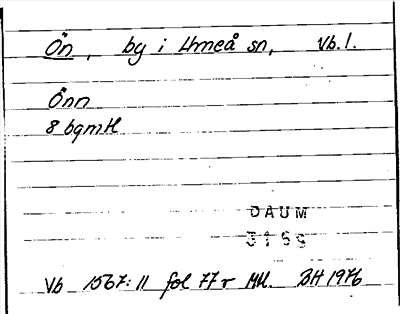 Ön, by i Umeå sn, Vb. l.
Önn
8 bgmtl
DAUM
3169
Vb 1567:11 fol 77 r Mtl. BH 1976